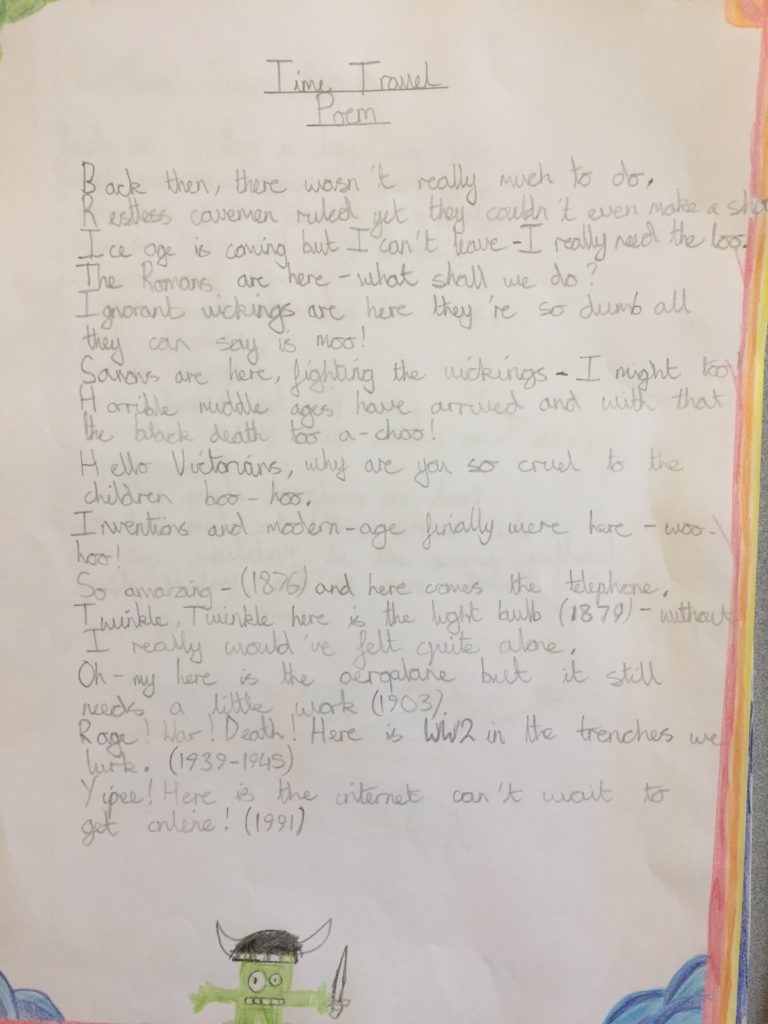 Time Travel
Poem
Back then, there wasn't really much to do,
Restless cavemen ruled yet they couldn't even make a
Ice age is coming but I can't leave - I really need the loo.
The Romans are here - what shall we do?
Ignorant vickings are here they're so dumb all
they can say is moo!
Saxons are here, fighting the vickings - I might too!
Horrible middle ages have arrived and with that
the black death too a-choo!
Hello Victorians, why are you so cruel to the
children boo-hoo.
Inventions and modern-age finially were here - woo-
hoo!
So amazing - (1876) and here comes the telephone.
Twinkle, Twinkle here is the light bulb (1879) - without
I really would've felt quite alone,
Oh-my here is the aeroplane but it still
needs a little work (1903).
Rage! War! Death! Here is WW2 in the trenches we
lurk. (1939-1945)
Yipee! Here is the internet can't wait to
get online! (1991)